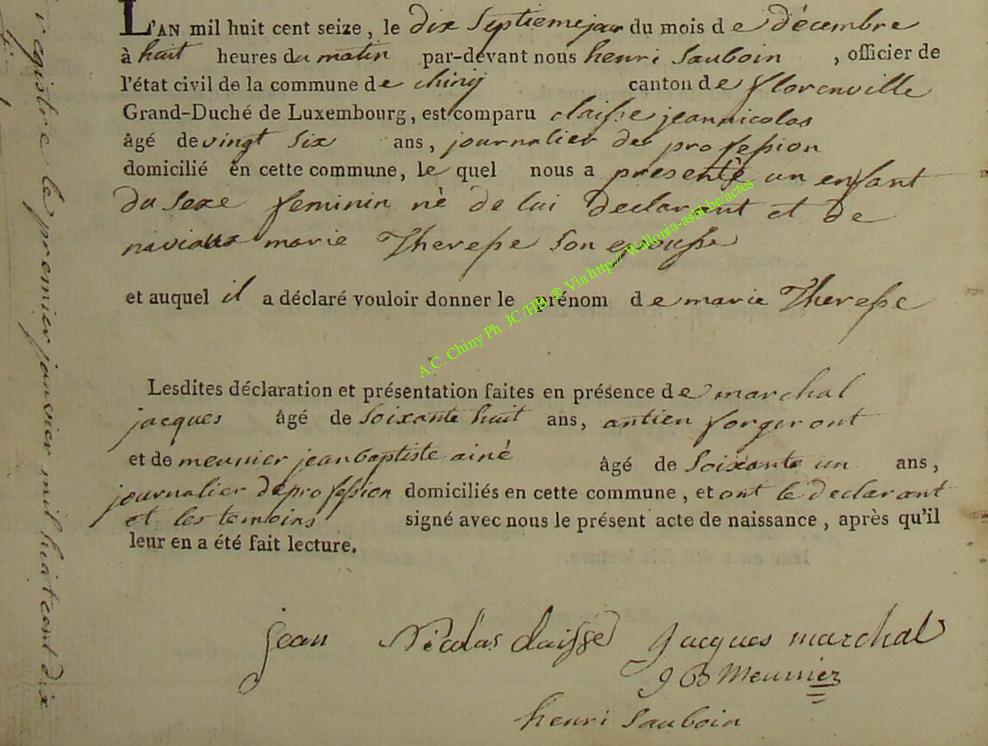 L'AN mil huit cent seize, le dix septieme jour du mois de décembre
à huit heures du matin par-devant nous henri Sauboin, officier de
l'état civil de la commune de chiny canton de florenville
Grand-Duché de Luxembourg, est comparu claisse jean nicolas
âgé de vingt six ans, journalier de profession
domicilié en cette commune, le quel nous a presenté un enfant
du sexe feminin né de lui declarant et de
marie Therese son epouse
et auquel il a déclaré vouloir donner le prénom de marie Therese
Lesdites déclaration et présentation faites en présence de marchal
jacques âgé de soixante huit ans, antien forgeront
et de meunier jean baptiste ainé âgé de soixante un ans,
journalier de profession domiciliés en cette commune, et ont le declarant
et les temoins signé avec nous le présent acte de naissance, après qu'il
leur en a été fait lecture.
jean Nicolas claisse jacques marchal
J B Meunier
henri Sauboin
le premier janvier mil huit cent dix
A.C. Chiny Ph. JC/HB @ Via http://Wallonia-asbl.be/actes